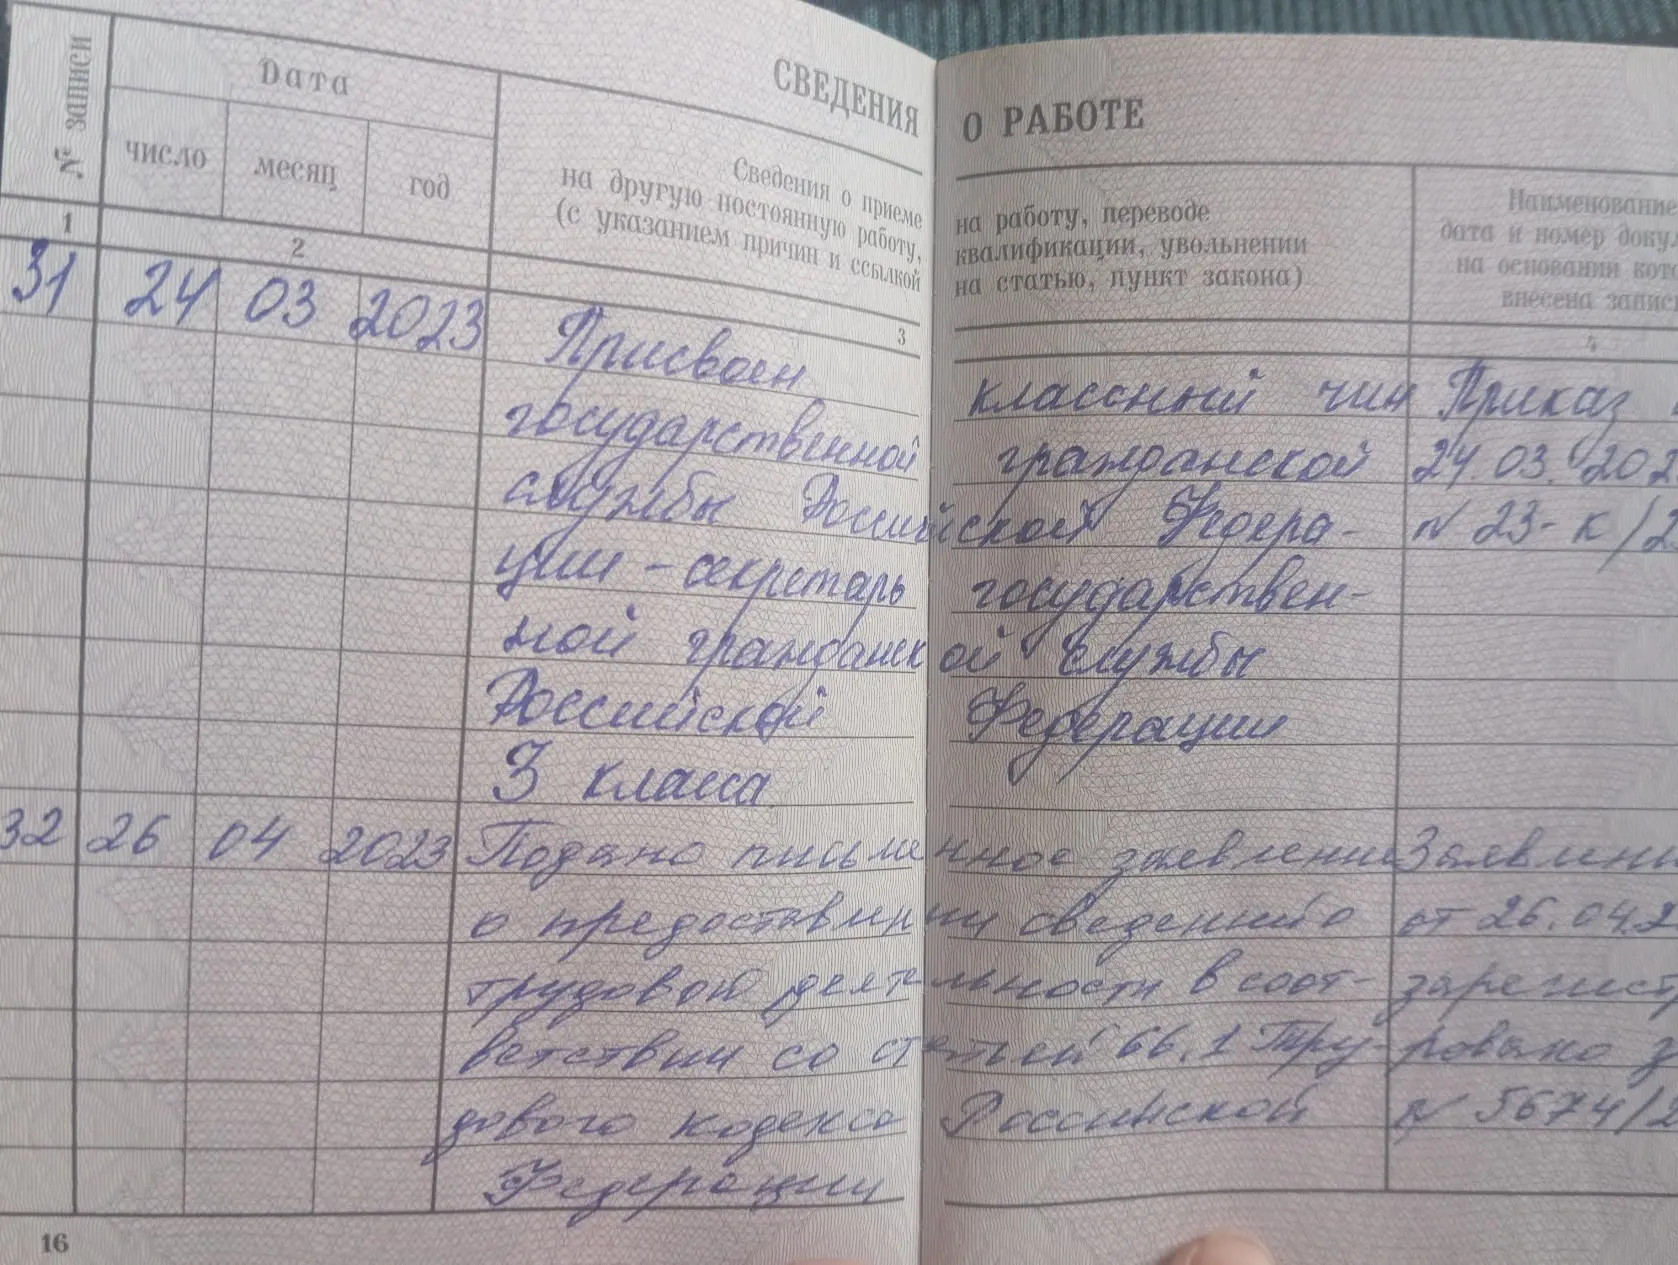 СВЕДЕНИЯ О РАБОТЕ
№ записи
Дата
число месяц год
Сведения о приеме на работу, переводе
на другую постоянную работу, квалификации, увольнении
(с указанием причин и ссылкой на статью, пункт закона)
Наименование
дата и номер доку
на основании кото
внесена запис
1 2 3 4
31 24 03 2023 Присвоен классный чин Приказ
государственной гражданской 24.03.202
службы Российской Федера- № 23-к/2
ции - секретарь государствен-
ной гражданской службы
Российской Федерации
3 класса
32 26 04 2023 Подано письменное заявление Заявлени
о предоставлении сведений о от 26.04.2
трудовой деятельности в соот- зарегист
ветствии со статьей 66.1 Тру- ровано з
дового кодекса Российской № 5674/2
Федерации
16